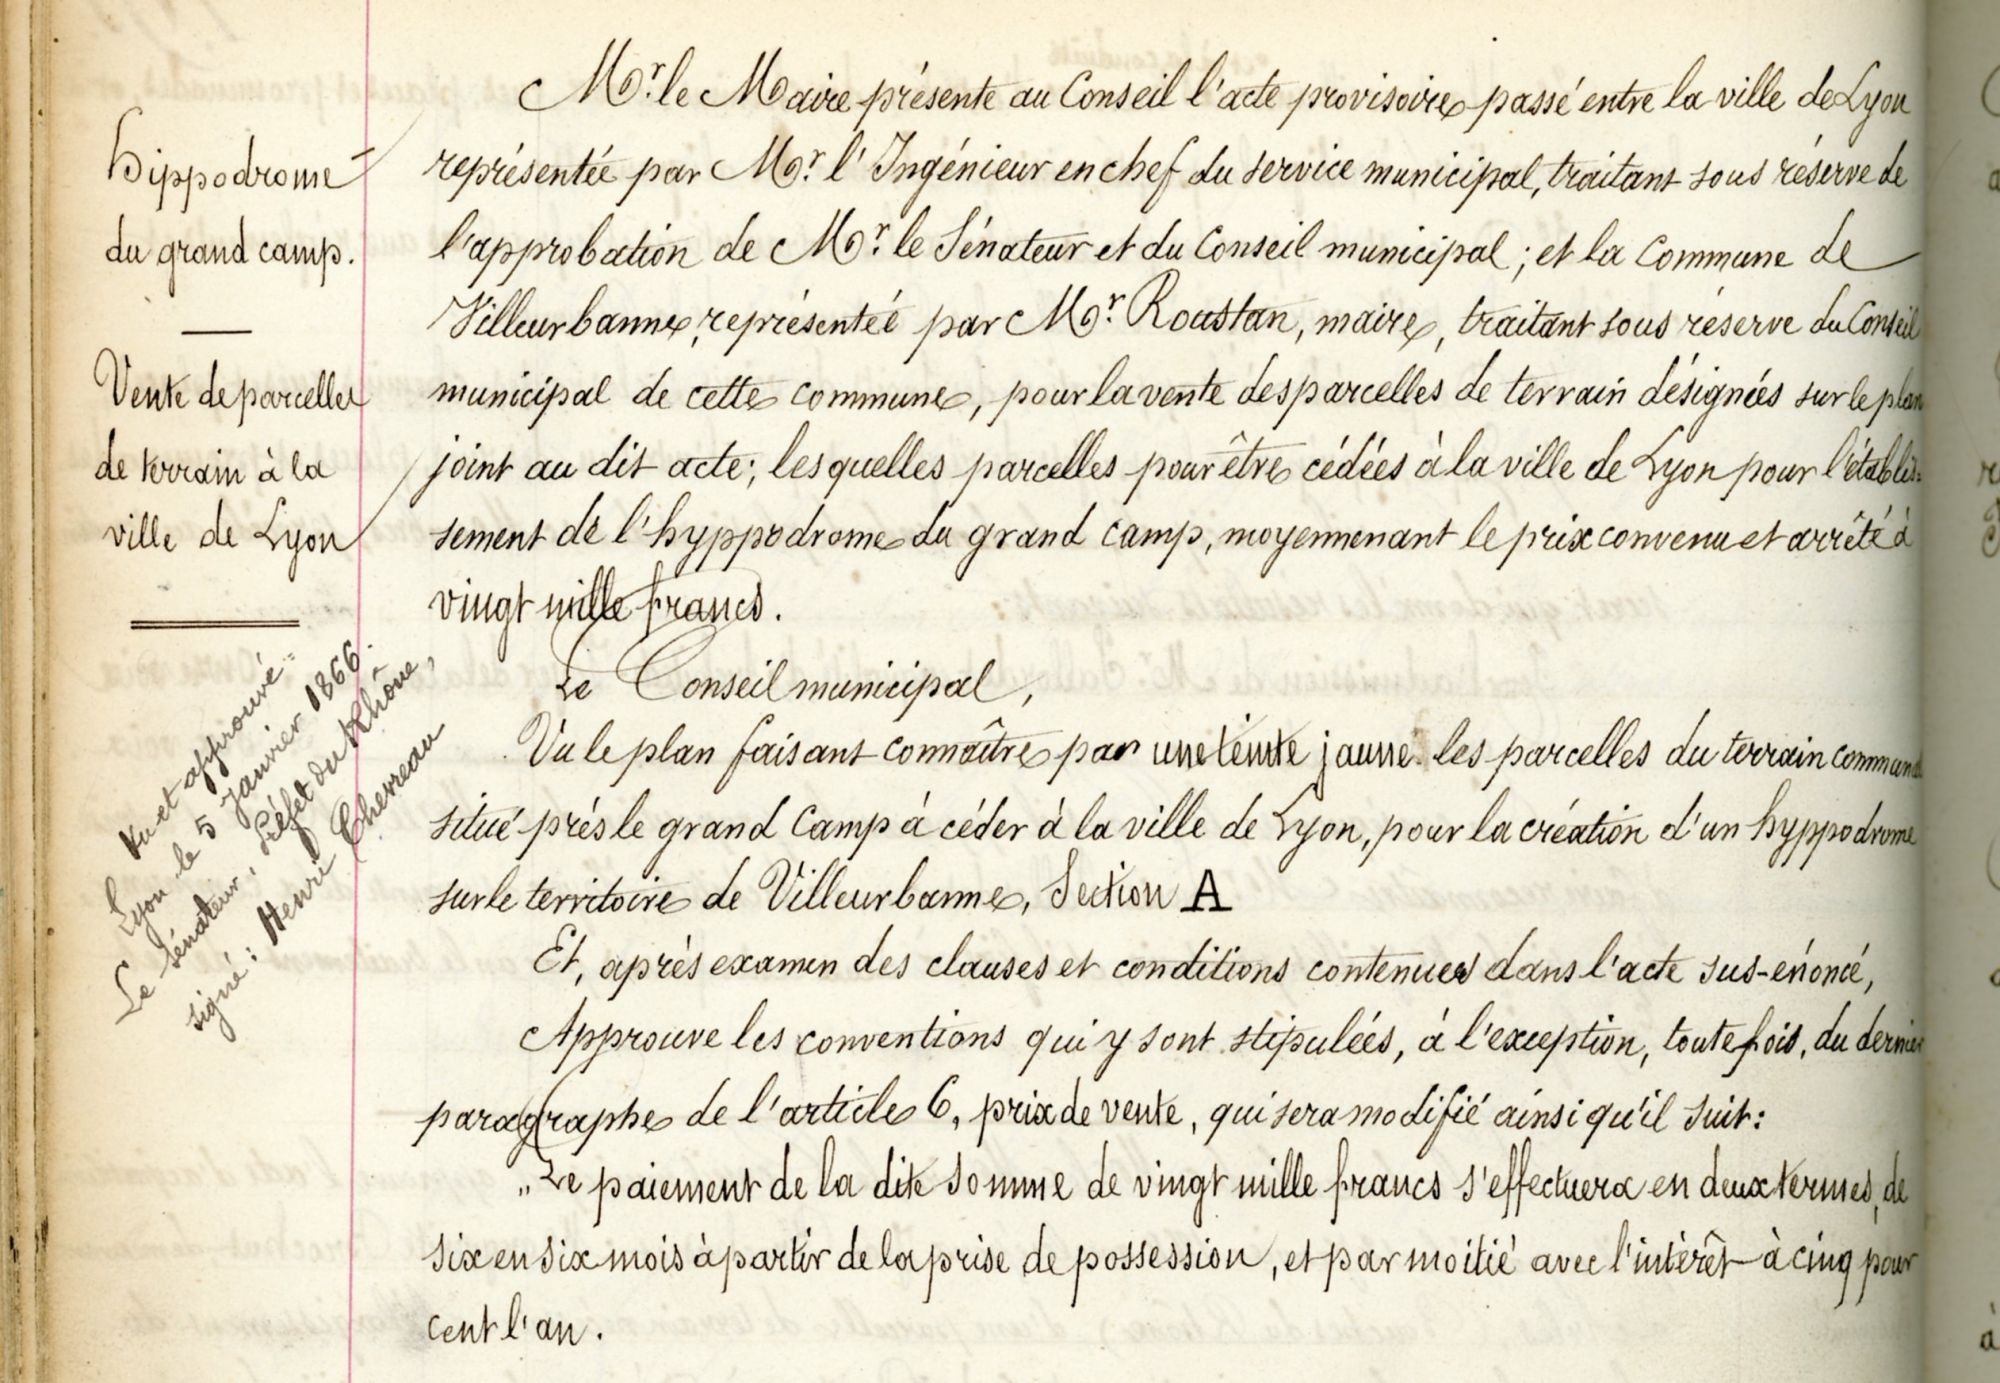 Hippodrome
du grand camp.
Vente de parcelles
de terrain à la
ville de Lyon
Vu et approuvé:
Lyon le 5 Janvier 1866.
Le Sénateur, Préfet du Rhône,
signé: Henri Chevreau
Mr. le Maire présente au Conseil l'acte provisoire passé entre la ville de Lyon
représentée par Mr. l'Ingénieur en chef du service municipal, traitant sous réserve de
l'approbation de Mr. le Sénateur et du Conseil municipal; et la Commune de
Villeurbanne, représentée par Mr. Roustan, maire, traitant sous réserve du Conseil
municipal de cette commune, pour la vente des parcelles de terrain désignées sur le plan
joint au dit acte; lesquelles parcelles pour être cédées à la ville de Lyon pour l'établis-
sement de l'hyppodrome du grand camp, moyennenant le prix convenu et arrêté à
vingt mille francs.
Le Conseil municipal,
Vu le plan faisant connaître par une teinte jaune les parcelles du terrain communal
situé près le grand Camp à céder à la ville de Lyon, pour la création d'un hyppodrome
sur le territoire de Villeurbanne, Section A
Et, après examen des clauses et conditions contenues dans l'acte sus-énoncé,
Approuve les conventions qui y sont stipulées, à l'exception, toutefois, du dernier
paragraphe de l'article 6, prix de vente, qui sera modifié ainsi qu'il suit:
„Le paiement de la dite somme de vingt mille francs s'effectuera en deux termes, de
six en six mois à partir de la prise de possession, et par moitié avec l'intérêt à cinq pour
cent l'an.